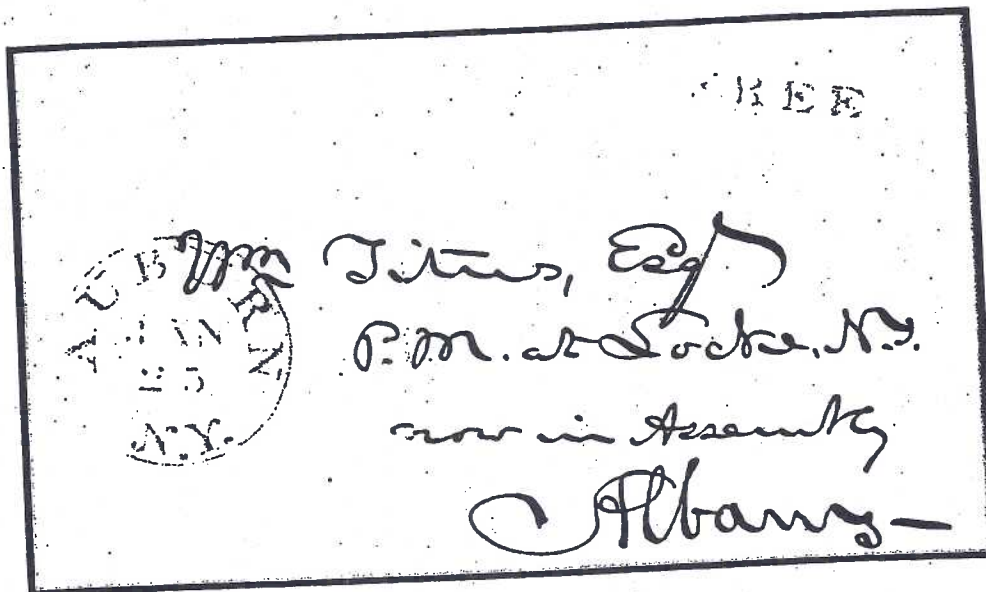 FREE
AUBURN
JAN
25
N.Y.
Wm Titus, Esq
P.M. at Locke, N.Y.
now in Assembly
Albany